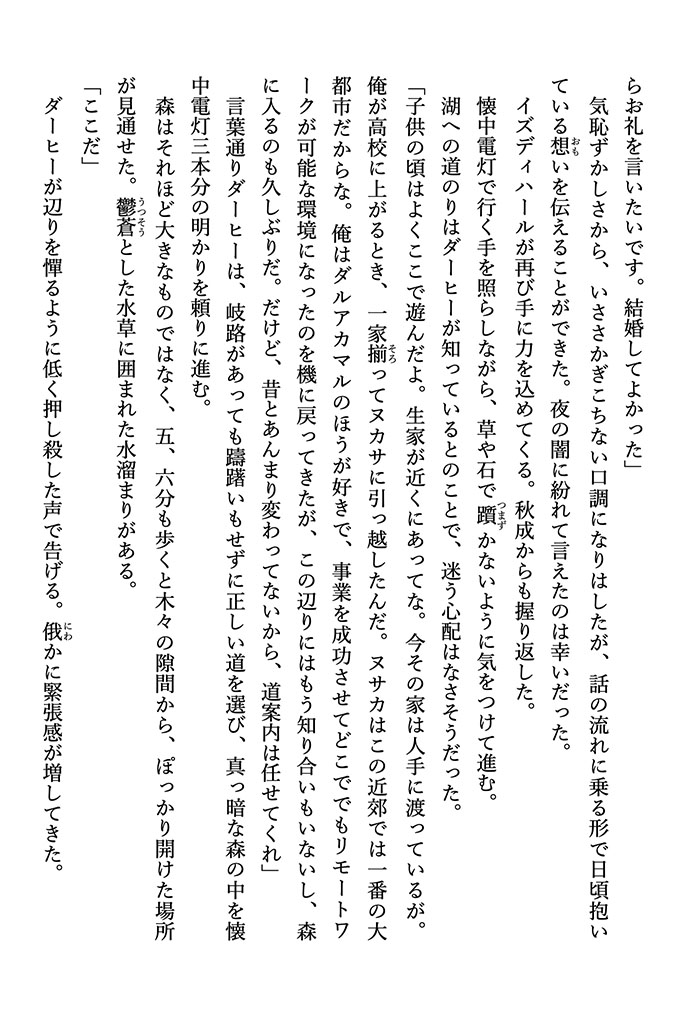 らお礼を言いたいです。結婚してよかった」
　気恥ずかしさから、いささかぎこちない口調になりはしたが、話の流れに乗る形で日頃抱い
ている想おもいを伝えることができた。夜の闇に紛れて言えたのは幸いだった。
　イズディハールが再び手に力を込めてくる。秋成からも握り返した。
　懐中電灯で行く手を照らしながら、草や石で躓つまずかないように気をつけて進む。
　湖への道のりはダーヒーが知っているとのことで、迷う心配はなさそうだった。
「子供の頃はよくここで遊んだよ。生家が近くにあってな。今その家は人手に渡っているが。
俺が高校に上がるとき、一家揃そろってヌカサに引っ越したんだ。ヌサカはこの近郊では一番の大
都市だからな。俺はダルアカマルのほうが好きで、事業を成功させてどこででもリモートワ
ークが可能な環境になったのを機に戻ってきたが、この辺りにはもう知り合いもいないし、森
に入るのも久しぶりだ。だけど、昔とあんまり変わってないから、道案内は任せてくれ」
　言葉通りダーヒーは、岐路があっても躊躇いもせずに正しい道を選び、真っ暗な森の中を懐
中電灯三本分の明かりを頼りに進む。
　森はそれほど大きなものではなく、五、六分も歩くと木々の隙間から、ぽっかり開けた場所
が見通せた。鬱蒼うつそうとした水草に囲まれた水溜まりがある。
「ここだ」
　ダーヒーが辺りを憚るように低く押し殺した声で告げる。俄にわかに緊張感が増してきた。